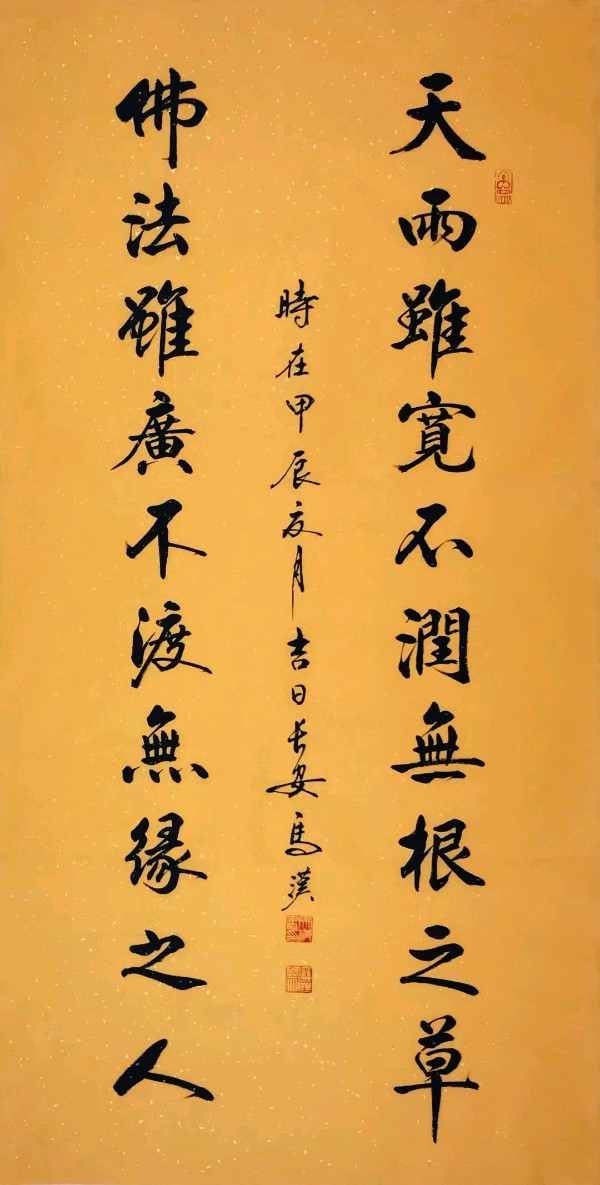 天雨雖寬不潤無根之草
時在甲辰夏月吉日長安馬漢
佛法雖廣不渡無緣之人